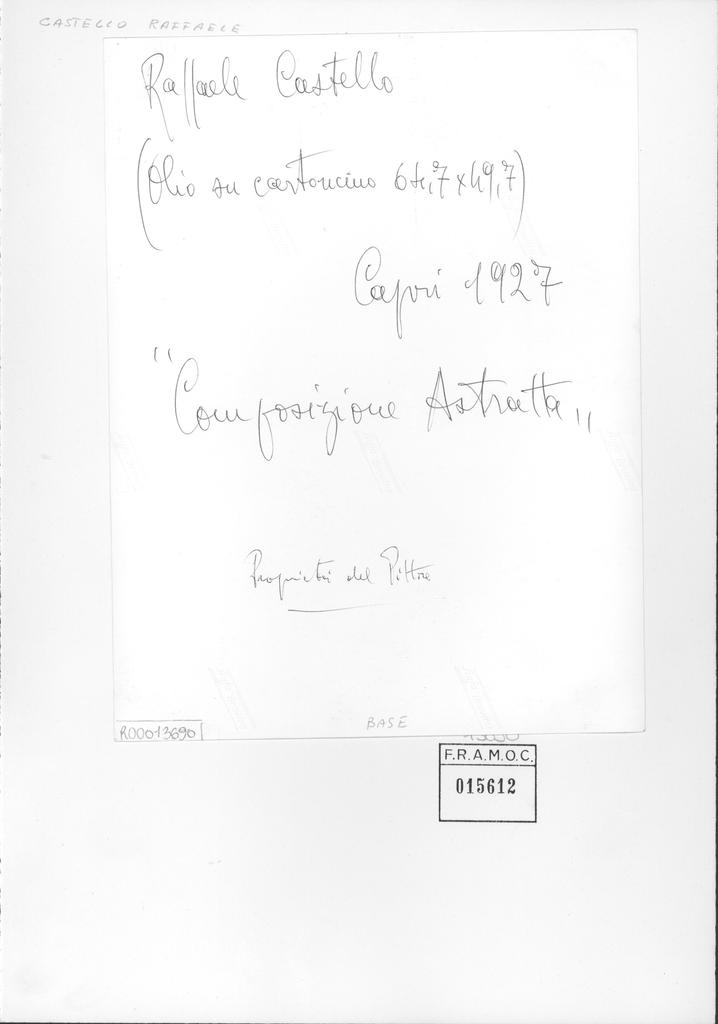 CASTELLO RAFFAELE
Raffaele Castello
(Olio su cartoncino 64,7 x 49,7)
Capri 1927
"Composizione Astratta"
Proprietà del Pittore
BASE
R00013690
F.R.A.M.O.C.
015612